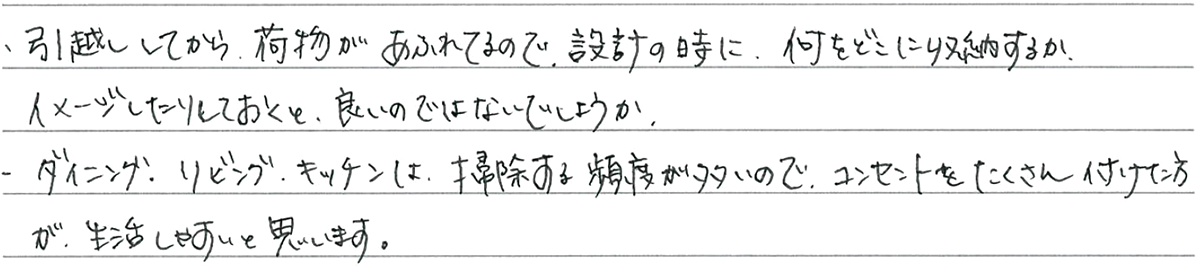 ・引越ししてから、荷物があふれてるので、設計の時に、何をどこに収納するか、
イメージしたりしておくと、良いのではないでしょうか。
・ダイニング、リビング、キッチンは、掃除する頻度が多いので、コンセントをたくさん付けた方
が、生活しやすいと思います。